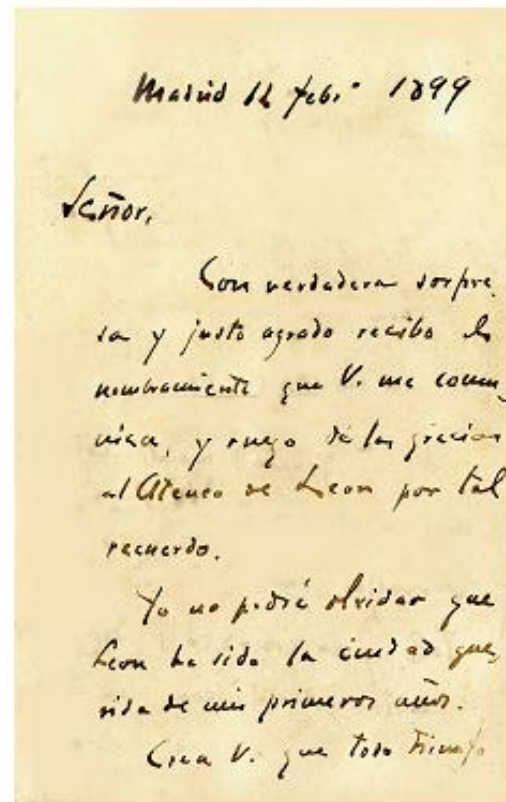 Madrid 12 febº 1899
Señor,
Con verdadera sorpre
sa y justo agrado recibo el
nombramiento que V. me comu-
nica, y ruego dé las gracias
al Ateneo de Leon por tal
recuerdo.
Yo no podré olvidar que
Leon ha sido la ciudad que-
rida de mis primeros años.
Crea V. que todo triunfo